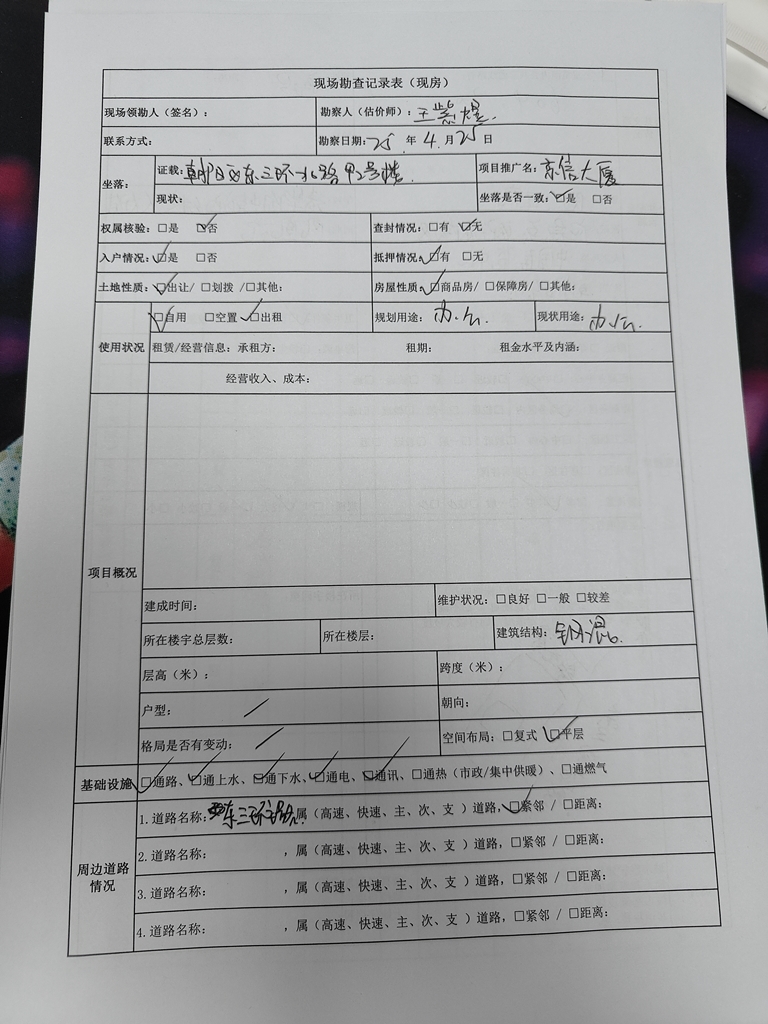 现场勘查记录表（现房）
现场领勘人（签名）： 勘察人（估价师）：王紫煜
联系方式： 勘察日期：25 年 4 月 25 日
坐落： 证载：朝阳区东三环北路甲2号楼 项目推广名：京信大厦
现状： 坐落是否一致：☑是 □否
权属核验：□是 ☑否 查封情况：□有 ☑无
入户情况：☑是 □否 抵押情况：☑有 □无
土地性质：☑出让/ □划拨 /□其他： 房屋性质：☑商品房/ □保障房/ □其他：
使用状况 ☑自用 □空置 ☑出租 规划用途：办公 现状用途：办公
租赁/经营信息：承租方： 租期： 租金水平及内涵：
经营收入、成本：
项目概况
建成时间： 维护状况：□良好 □一般 □较差
所在楼宇总层数： 所在楼层： 建筑结构：钢混
层高（米）： 跨度（米）：
户型： / 朝向：
格局是否有变动： / 空间布局：□复式 ☑平层
基础设施 ☑通路、☑通上水、☑通下水、☑通电、☑通讯、□通热（市政/集中供暖）、□通燃气
周边道路情况
1.道路名称：东三环 ，属（高速、快速、主、次、支 ）道路，☑紧邻 / □距离：
2.道路名称： ，属（高速、快速、主、次、支 ）道路，□紧邻 / □距离：
3.道路名称： ，属（高速、快速、主、次、支 ）道路，□紧邻 / □距离：
4.道路名称： ，属（高速、快速、主、次、支 ）道路，□紧邻 / □距离：